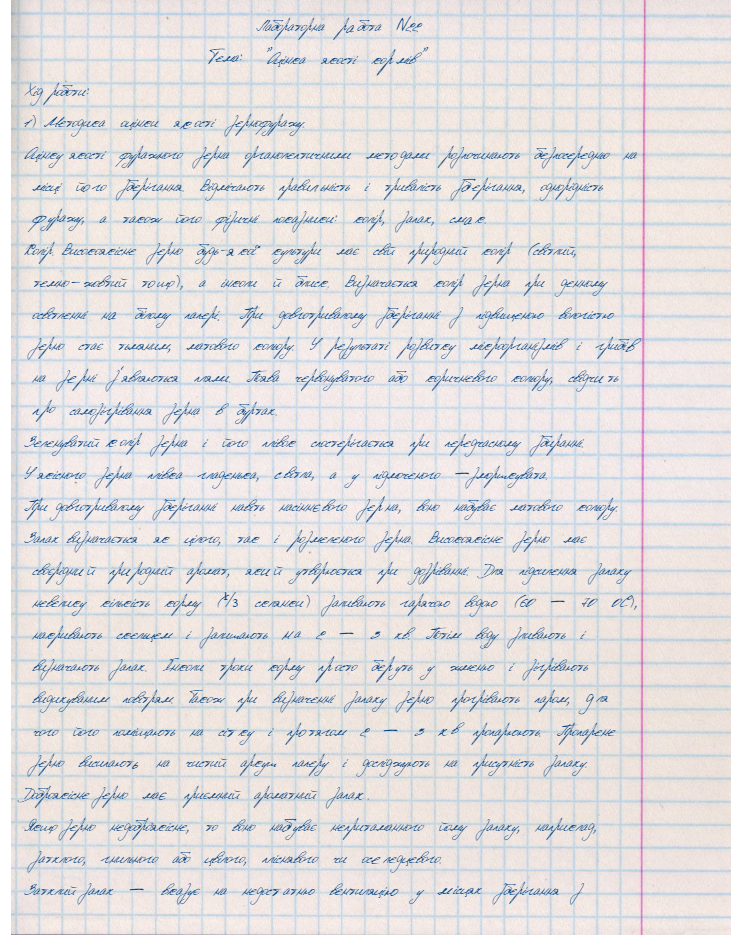 Лабораторна робота №22
Тема: "Оцінка якості кормів"
Хід роботи:
1) Методика оцінки якості зернофуражу.
Оцінку якості фуражного зерна органолептичними методами розпочинають безпосередньо на
місці його зберігання. Відмічають правильність і тривалість зберігання, однорідність
фуражу, а також його фізичні показники: колір, запах, смак.
Колір. Високоякісне зерно будь-якої культури має свій природний колір (світлий,
темно-жовтий тощо), а інколи й блиск. Визначається колір зерна при денному
освітленні на білому папері. При довготривалому зберіганні з підвищеною вологістю
зерно стає тьмяним, матового кольору. У результаті розвитку мікроорганізмів і грибів
на зерні з'являються плями. Поява червонуватого або коричневого кольору, свідчить
про самозігрівання зерна в буртах.
Зеленуватий колір зерна і його плівок спостерігається при передчасному збиранні.
У якісного зерна плівка гладенька, світла, а у підмоченого — зморшкувата.
При довготривалому зберіганні навіть насіннєвого зерна, воно набуває матового кольору.
Запах визначається як цілого, так і розмеленого зерна. Високоякісне зерно має
своєрідний природний аромат, який утворюється при дозріванні. Для підсилення запаху
невелику кількість корму (2/3 склянки) заливають гарячою водою (60 — 70 0С),
накривають скельцем і залишають на 2 — 3 хв. Потім воду зливають і
визначають запах. Інколи трохи корму просто беруть у жменю і зігрівають
видихуваним повітрям. Також при визначенні запаху зерно прогрівають паром, для
чого його поміщають на сітку і протягом 2 — 3 хв пропарюють. Пропарене
зерно висипають на чистий аркуш паперу і досліджують на присутність запаху.
Доброякісне зерно має приємний ароматний запах.
Якщо зерно недоброякісне, то воно набуває непритаманного йому запаху, наприклад,
затхлого, гнильного або цвілого, пліснявого чи оселедцевого.
Затхлий запах — вказує на недостатню вентиляцію у місцях зберігання з